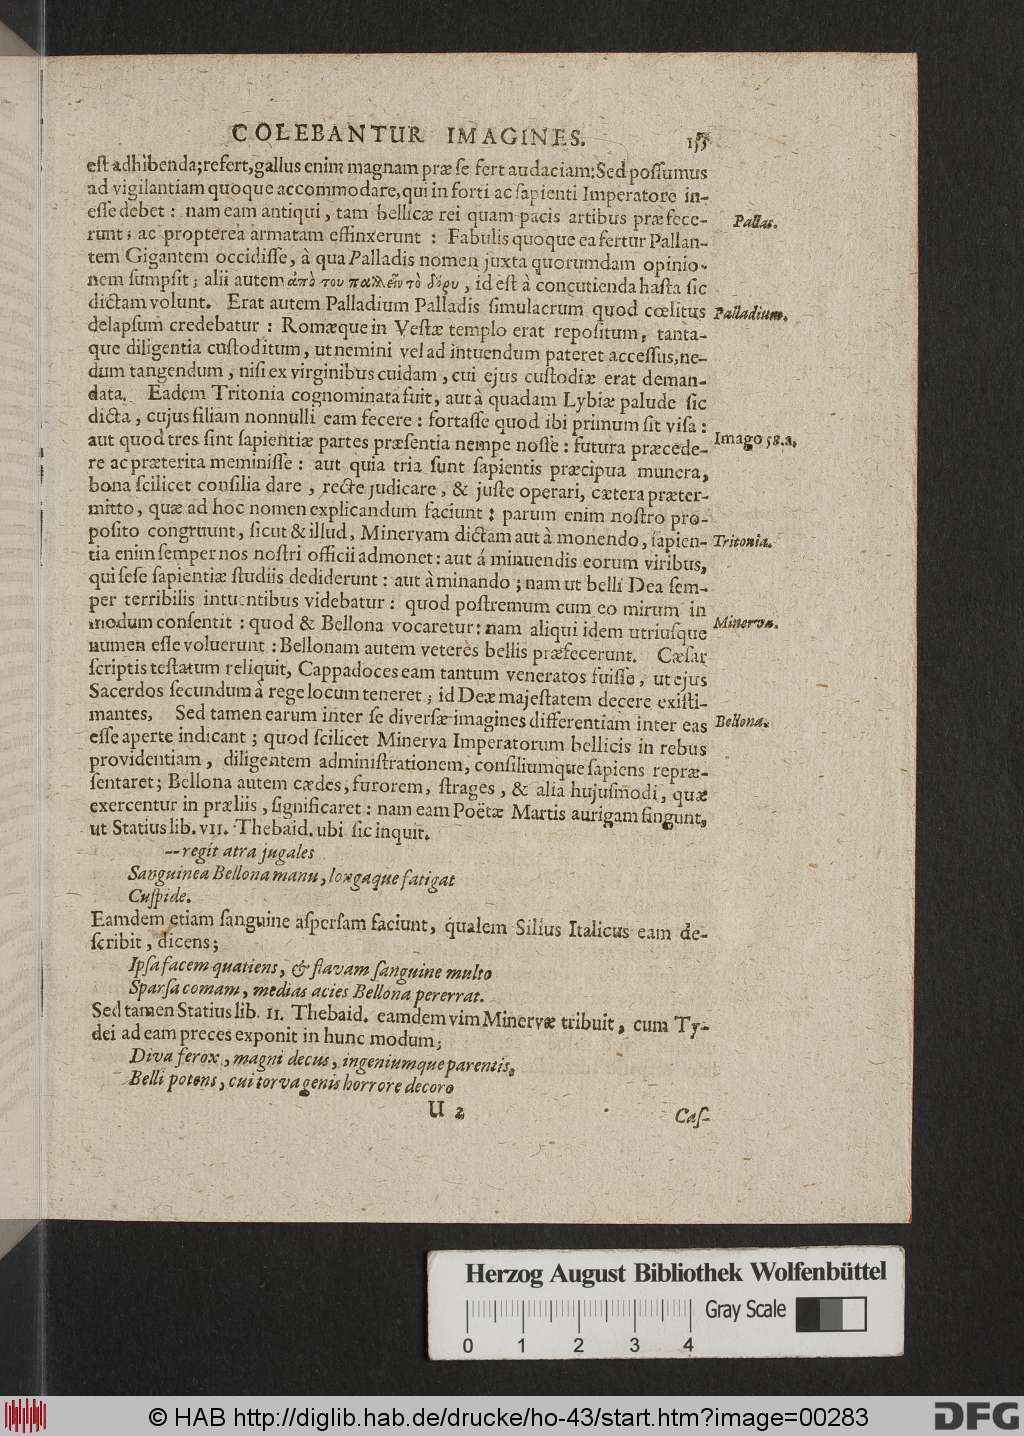 COLEBANTUR IMAGINES. 155
eſt adhibenda; refert, gallus enim magnam præ ſe fert audaciam: Sed poſſumus
ad vigilantiam quoque accommodare, qui in forti ac ſapienti Imperatore in-
eſſe debet : nam eam antiqui, tam bellicæ rei quam pacis artibus præfece-
runt; ac propterea armatam effinxerunt : Fabulis quoque ea fertur Pallan-
Pallas.
tem Gigantem occidiſſe, à qua Palladis nomen juxta quorumdam opinio-
nem ſumpſit; alii autem ἀπὸ του παλλεῖν τὸ δόρυ, id eſt à concutienda haſta ſic
dictam volunt. Erat autem Palladium Palladis ſimulacrum quod cœlitus
Palladium.
delapſum credebatur : Romæque in Veſtæ templo erat repoſitum, tanta-
que diligentia cuſtoditum, ut nemini vel ad intuendum pateret acceſſus, ne-
dum tangendum, niſi ex virginibus cuidam, cui ejus cuſtodiæ erat deman-
data. Eadem Tritonia cognominata fuit, aut à quadam Lybiæ palude ſic
dicta, cujus filiam nonnulli eam fecere : fortaſſe quod ibi primum ſit viſa :
aut quod tres ſint ſapientiæ partes præſentia nempe noſſe : futura præcede-
Imago 58.a.
re ac præterita meminiſſe : aut quia tria ſunt ſapientis præcipua munera,
bona ſcilicet conſilia dare, recte judicare, & juſte operari, cætera præter-
mitto, quæ ad hoc nomen explicandum faciunt : parum enim noſtro pro-
poſito congruunt, ſicut & illud, Minervam dictam aut à monendo, ſapien-
Tritonia.
tia enim ſemper nos noſtri officii admonet : aut á minuendis eorum viribus,
qui ſeſe ſapientiæ ſtudiis dediderunt : aut à minando ; nam ut belli Dea ſem-
per terribilis intuentibus videbatur : quod poſtremum cum eo mirum in
modum conſentit : quod & Bellona vocaretur : nam aliqui idem utriuſque
Minerva.
numen eſſe voluerunt : Bellonam autem veteres bellis præfecerunt. Cæſar
ſcriptis teſtatum reliquit, Cappadoces eam tantum veneratos fuiſſe, ut ejus
Sacerdos ſecundum à rege locum teneret ; id Deæ majeſtatem decere exiſti-
mantes. Sed tamen earum inter ſe diverſæ imagines differentiam inter eas
Bellona.
eſſe aperte indicant ; quod ſcilicet Minerva Imperatorum bellicis in rebus
providentiam, diligentem adminiſtrationem, conſiliumque ſapiens repræ-
ſentaret; Bellona autem cædes, furorem, ſtrages, & alia hujuſmodi, quæ
exercentur in præliis, ſignificaret : nam eam Poëtæ Martis aurigam fingunt,
ut Statius lib. VII. Thebaid. ubi ſic inquit.
-- regit atra jugales
Sanguinea Bellona manu, longaque fatigat
Cuſpide.
Eamdem etiam ſanguine aſperſam faciunt, qualem Silius Italicus eam de-
ſcribit, dicens;
Ipſa facem quatiens, & flavam ſanguine multo
Sparſa comam, medias acies Bellona pererrat.
Sed tamen Statius lib. II. Thebaid. eamdem vim Minervæ tribuit, cum Ty-
dei ad eam preces exponit in hunc modum;
Diva ferox, magni decus, ingeniumque parentis,
Belli potens, cui torva genis horrore decoro
U 2 Caſ-
Herzog August Bibliothek Wolfenbüttel
Gray Scale
0 1 2 3 4
© HAB http://diglib.hab.de/drucke/ho-43/start.htm?image=00283
DFG